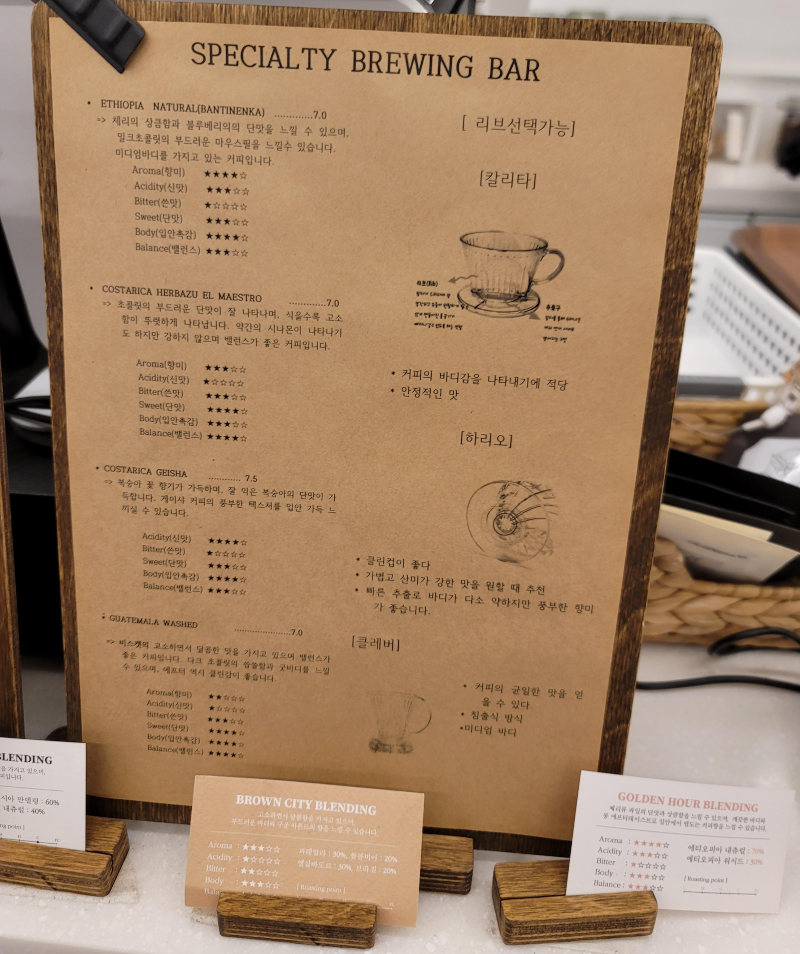 SPECIALTY BREWING BAR
• ETHIOPIA NATURAL(BANTINENKA) .............7.0
=> 체리의 상큼함과 블루베리의의 단맛을 느낄 수 있으며,
밀크초콜릿의 부드러운 마우스필을 느낄수 있습니다.
미디엄바디를 가지고 있는 커피입니다.
Aroma(향미) ★★★★☆
Acidity(신맛) ★★★☆☆
Bitter(쓴맛) ★☆☆☆☆
Sweet(단맛) ★★★☆☆
Body(입안촉감) ★★★★☆
Balance(밸런스) ★★★☆☆
• COSTARICA HERBAZU EL MAESTRO .............7.0
=> 초콜릿의 부드러운 단맛이 잘 나타나며, 식을수록 고소
함이 뚜렷하게 나타납니다. 약간의 시나몬이 나타나기
도 하지만 강하지 않으며 밸런스가 좋은 커피입니다.
Aroma(향미) ★★★☆☆
Acidity(신맛) ★☆☆☆☆
Bitter(쓴맛) ★★★☆☆
Sweet(단맛) ★★★★☆
Body(입안촉감) ★★★☆☆
Balance(밸런스) ★★★★☆
• COSTARICA GEISHA ............ 7.5
=> 복숭아 꽃 향기가 가득하며, 잘 익은 복숭아의 단맛이 가
득합니다. 게이샤 커피의 풍부한 텍스처를 입안 가득 느
끼실 수 있습니다.
Acidity(신맛) ★★★★☆
Bitter(쓴맛) ★☆☆☆☆
Sweet(단맛) ★★★☆☆
Body(입안촉감) ★★★★☆
Balance(밸런스) ★★★☆☆
• GUATEMALA WASHED ....................7.0
=> 비스켓의 고소하면서 달콤한 맛을 가지고 있으며 밸런스가
좋은 커피입니다. 다크 초콜릿의 쌉쌀함과 굿바디를 느낄
수 있으며, 에프터 역시 클린컵이 좋습니다.
Aroma(향미) ★★☆☆☆
Acidity(신맛) ★☆☆☆☆
Bitter(쓴맛) ★★★☆☆
Sweet(단맛) ★★★★☆
Body(입안촉감) ★★★★☆
Balance(밸런스) ★★★★☆
[ 리브선택가능]
[칼리타]
• 커피의 바디감을 나타내기에 적당
• 안정적인 맛
[하리오]
• 클린컵이 좋다
• 가볍고 산미가 강한 맛을 원할 때 추천
• 빠른 추출로 바디가 다소 약하지만 풍부한 향미
가 좋습니다.
[클레버]
• 커피의 균일한 맛을 얻
을 수 있다.
• 침출식 방식
•미디엄 바디
BLENDING
을 가지고 있으며,
시아 만델링 : 60%
내츄럴 : 40%
ing point ]
BROWN CITY BLENDING
고소하면서 상큼함을 가지고 있으며,
Aroma : ★★★☆☆
Acidity : ★☆☆☆☆
Bitter : ★★☆☆☆
Body : ★★★☆☆
과테말라 : 30%, 콜롬비아 : 20%
엘살바도르 : 30%, 브라질 : 20%
[ Roasting point ]
GOLDEN HOUR BLENDING
베리류 과일의 단맛과 상큼함을 느낄 수 있으며,
Aroma : ★★★★☆
Acidity : ★★★☆☆
Bitter : ★☆☆☆☆
Body : ★★★☆☆
Balance : ★★★☆☆
에티오피아 내츄럴 : 70%
에티오피아 워시드 : 30%
[ Roasting point ]